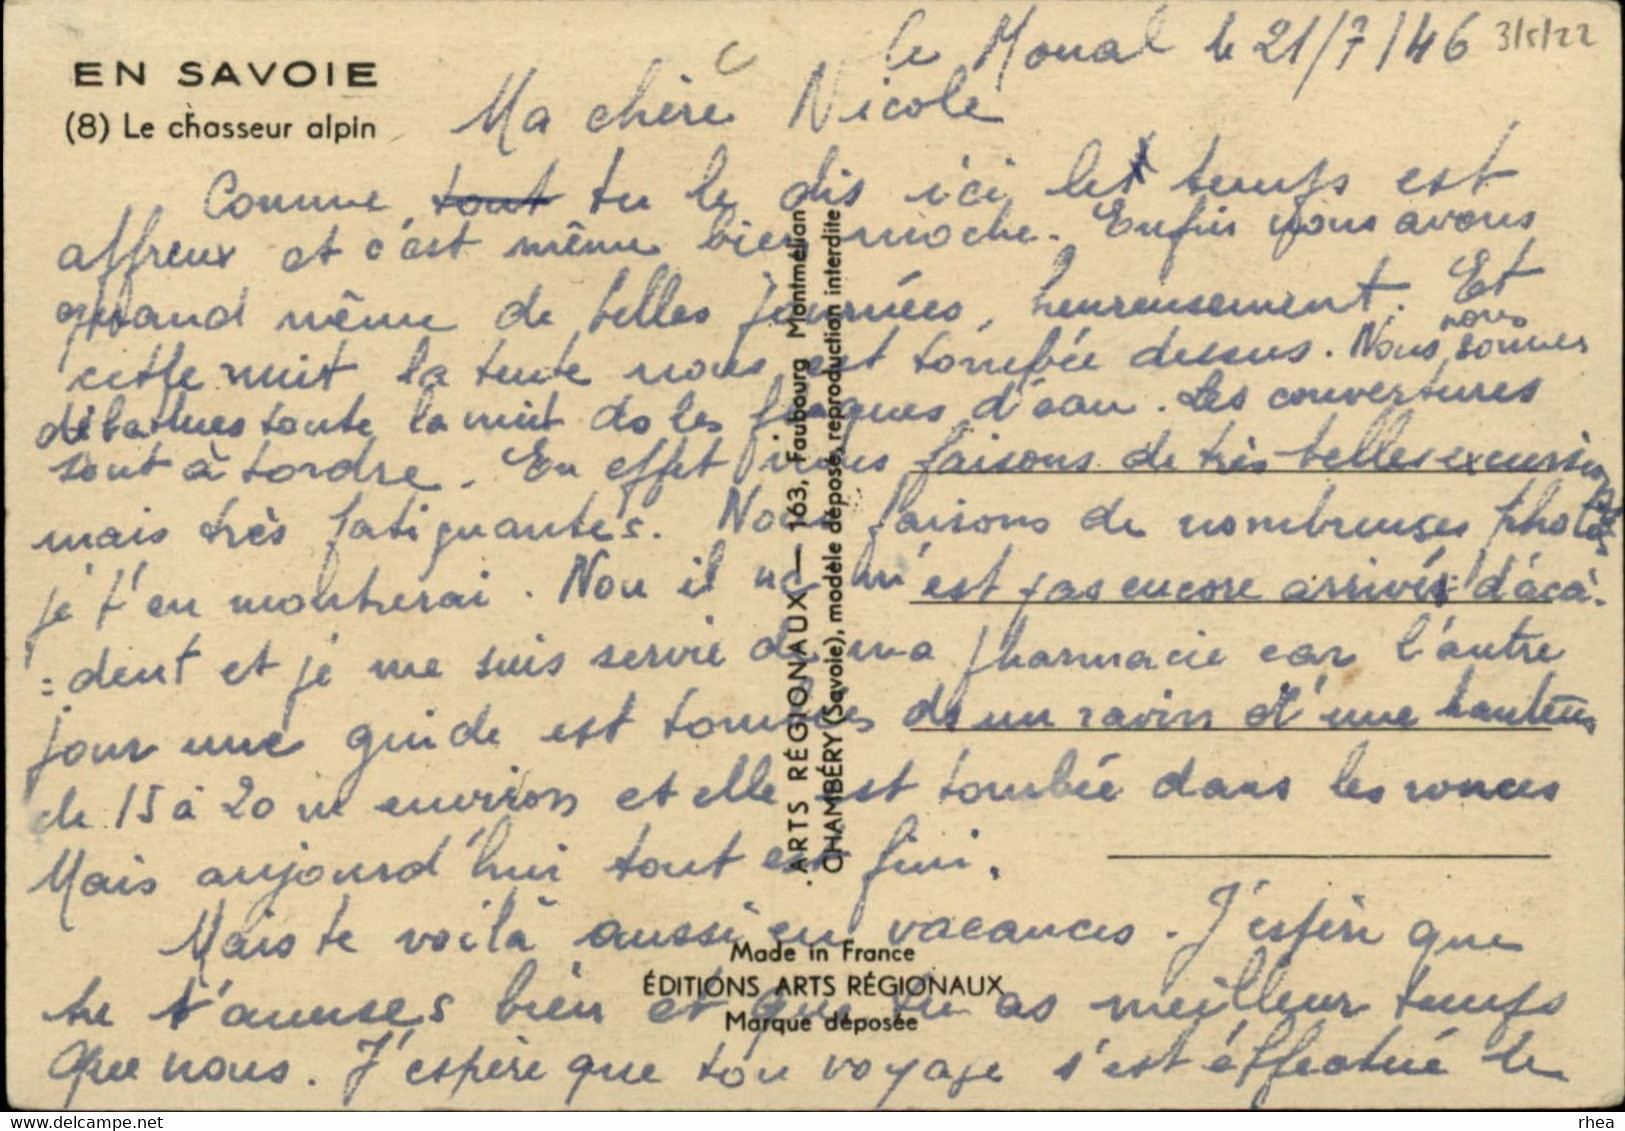 EN SAVOIE
(8) Le chasseur alpin
le Monal le 21/7/46
3/5/22
Ma chère Nicole
Comme tout tu le dis ici let temps est
affreux et c'est même bien moche. Enfin nous avons
quand même de belles journées, heureusement. Et
cette nuit la tente nous est tombée dessus. Nous nous sommes
débattues toute la nuit ds les flaques d'eau. Les couvertures
sont à tordre. En effet nous faisons de très belles excursions
mais très fatiguantes. Nous faisons de nombreuses photos
je t'en montrerai. Non il ne m'est pas encore arrivé d'acà-
=dent et je me suis servie de ma pharmacie car l'autre
jour une guide est tombée ds un ravin d'une hauteur
de 15 à 20 m environ et elle est tombée dans les ronces
Mais aujourd'hui tout est fini.
Mais te voilà aussi en vacances. J'espère que
tu t'amuses bien et que tu as meilleur temps
que nous. J'espère que ton voyage s'est éffectué le
ARTS RÉGIONAUX — 163, Faubourg Montmélian
CHAMBÉRY (Savoie), modèle déposé, reproduction interdite
Made in France
ÉDITIONS ARTS RÉGIONAUX
Marque déposée
www.delcampe.net
rhea